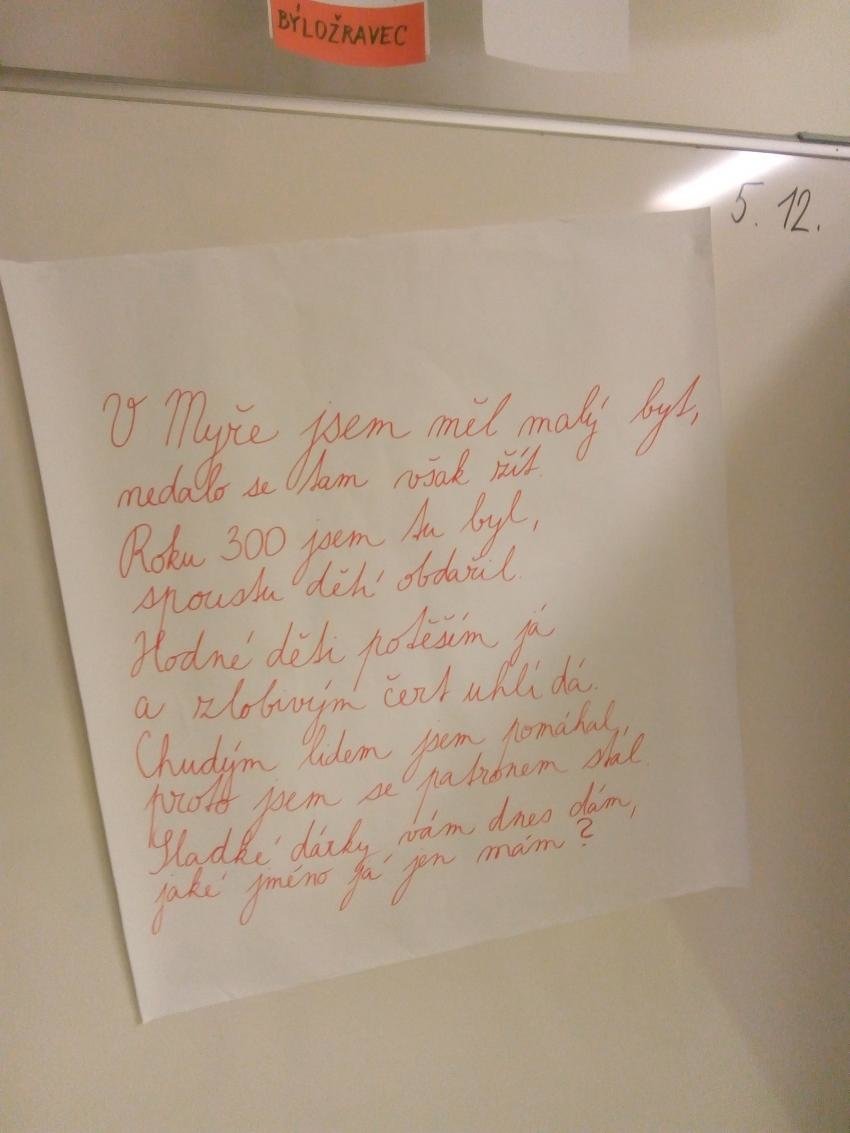 BÝLOŽRAVEC
5. 12.
V Myře jsem měl malý byt,
nedalo se tam však žít.
Roku 300 jsem tu byl,
spoustu dětí obdařil.
Hodné děti potěším já
a zlobivým čert uhlí dá.
Chudým lidem jsem pomáhal,
proto jsem se patronem stal.
Sladké dárky vám dnes dám,
jaké jméno já jen mám?